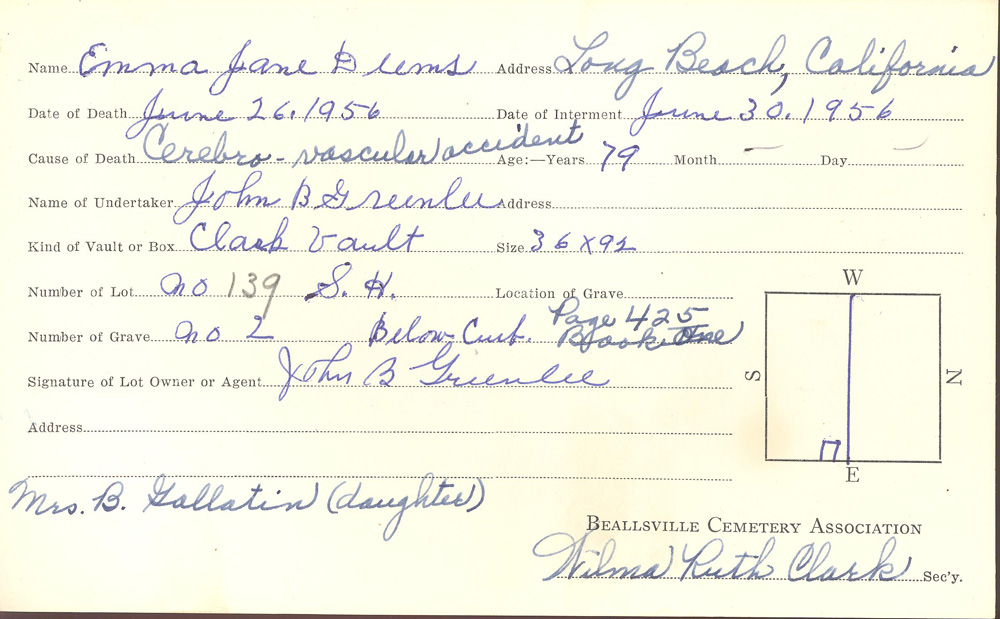 Name Emma Jane Deems Address Long Beach, California
Date of Death June 26. 1956 Date of Interment June 30. 1956
Cause of Death Cerebro-vascular accident Age:—Years 79 Month — Day —
Name of Undertaker John B Greenlee Address
Kind of Vault or Box Clark Vault Size 36 x 92
Number of Lot no 139 S. H. Location of Grave
Number of Grave no 2 Below Curb. Page 425 Book One
Signature of Lot Owner or Agent John B Greenlee
Address
Mrs. B. Gallatin (daughter)
W
S
N
E
BEALLSVILLE CEMETERY ASSOCIATION
Wilma Ruth Clark Sec'y.